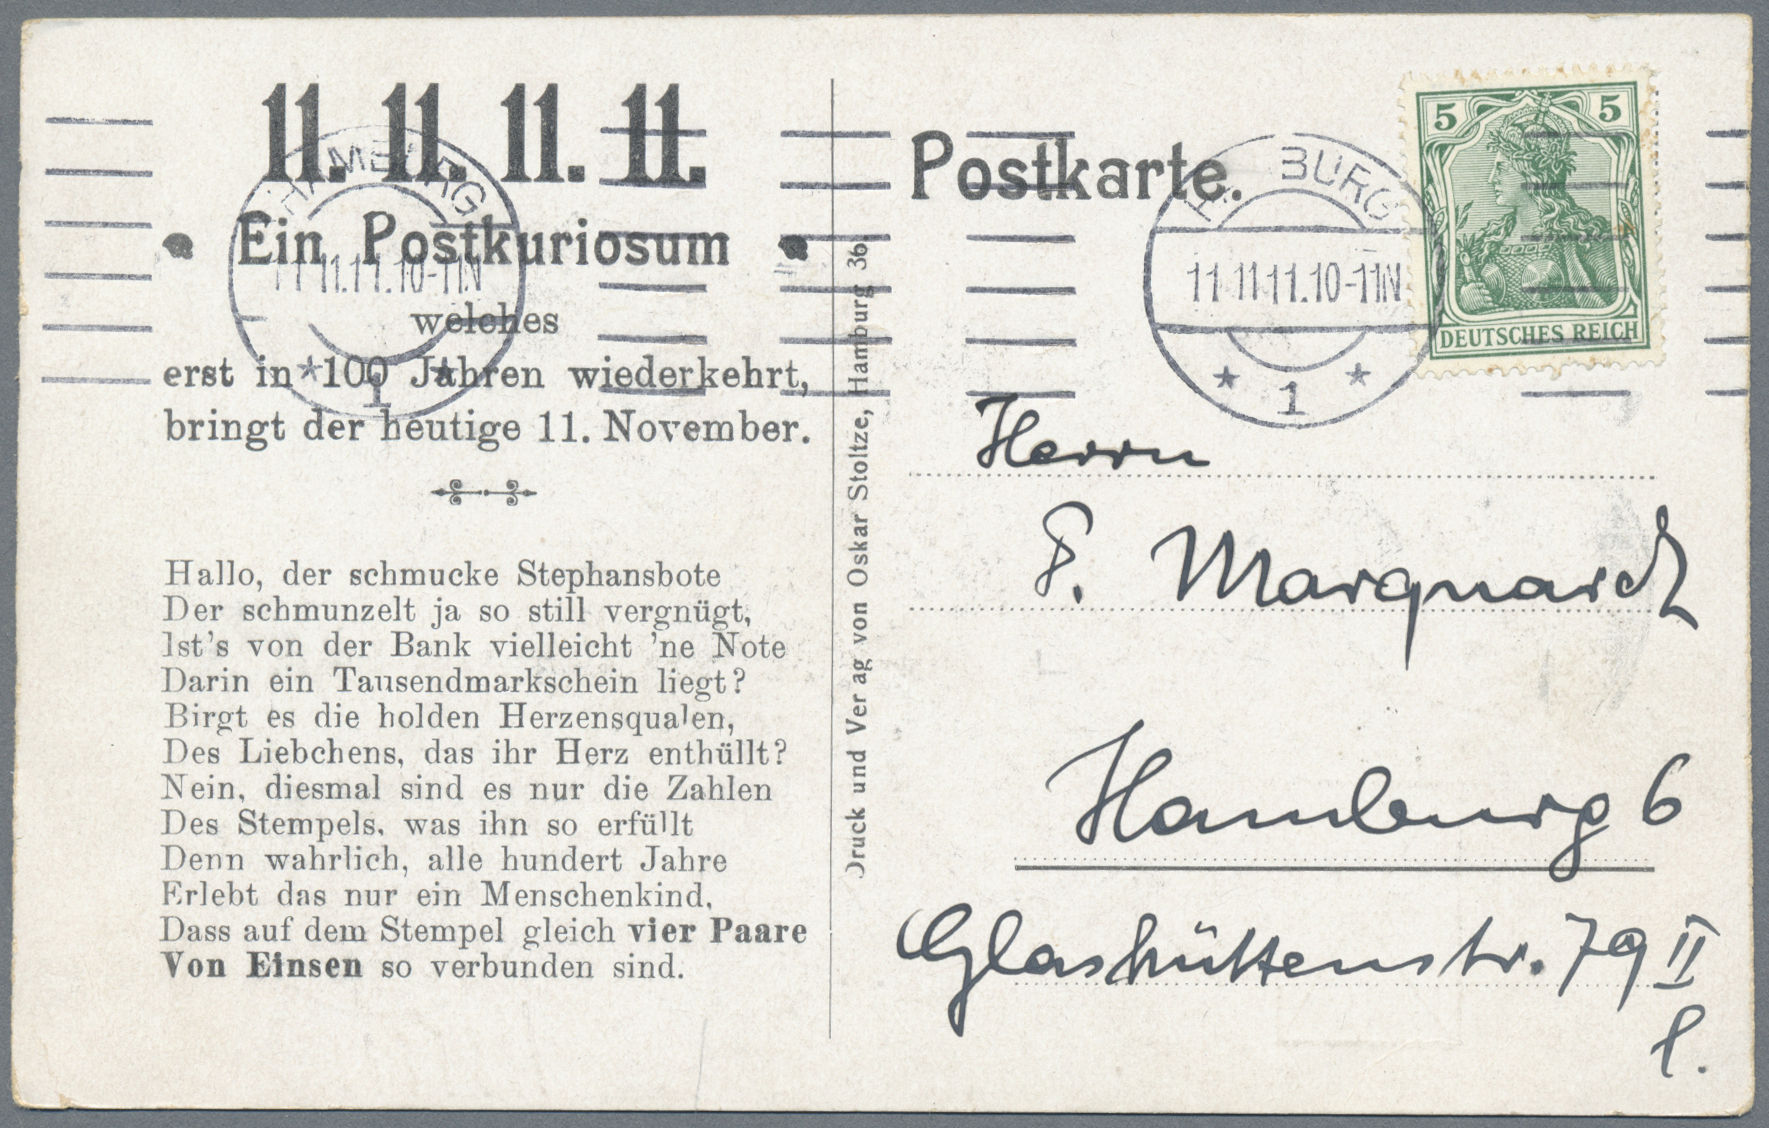 11. 11. 11. 11.
Ein Postkuriosum
welches
erst in 100 Jahren wiederkehrt,
bringt der heutige 11. November.
HAMBURG
11.11.11.10-11N
* 1 *
Hallo, der schmucke Stephansbote
Der schmunzelt ja so still vergnügt,
Ist's von der Bank vielleicht 'ne Note
Darin ein Tausendmarkschein liegt?
Birgt es die holden Herzensqualen,
Des Liebchens, das ihr Herz enthüllt?
Nein, diesmal sind es nur die Zahlen
Des Stempels, was ihn so erfüllt
Denn wahrlich, alle hundert Jahre
Erlebt das nur ein Menschenkind,
Dass auf dem Stempel gleich vier Paare
Von Einsen so verbunden sind.
Druck und Ver ag von Oskar Stoltze, Hamburg 36.
Postkarte.
H BURG
11.11.11.10-11N
* 1 *
5 5
DEUTSCHES REICH
Herrn
P. Marquardt
Hamburg 6
Glashüttenstr. 79 II
l.